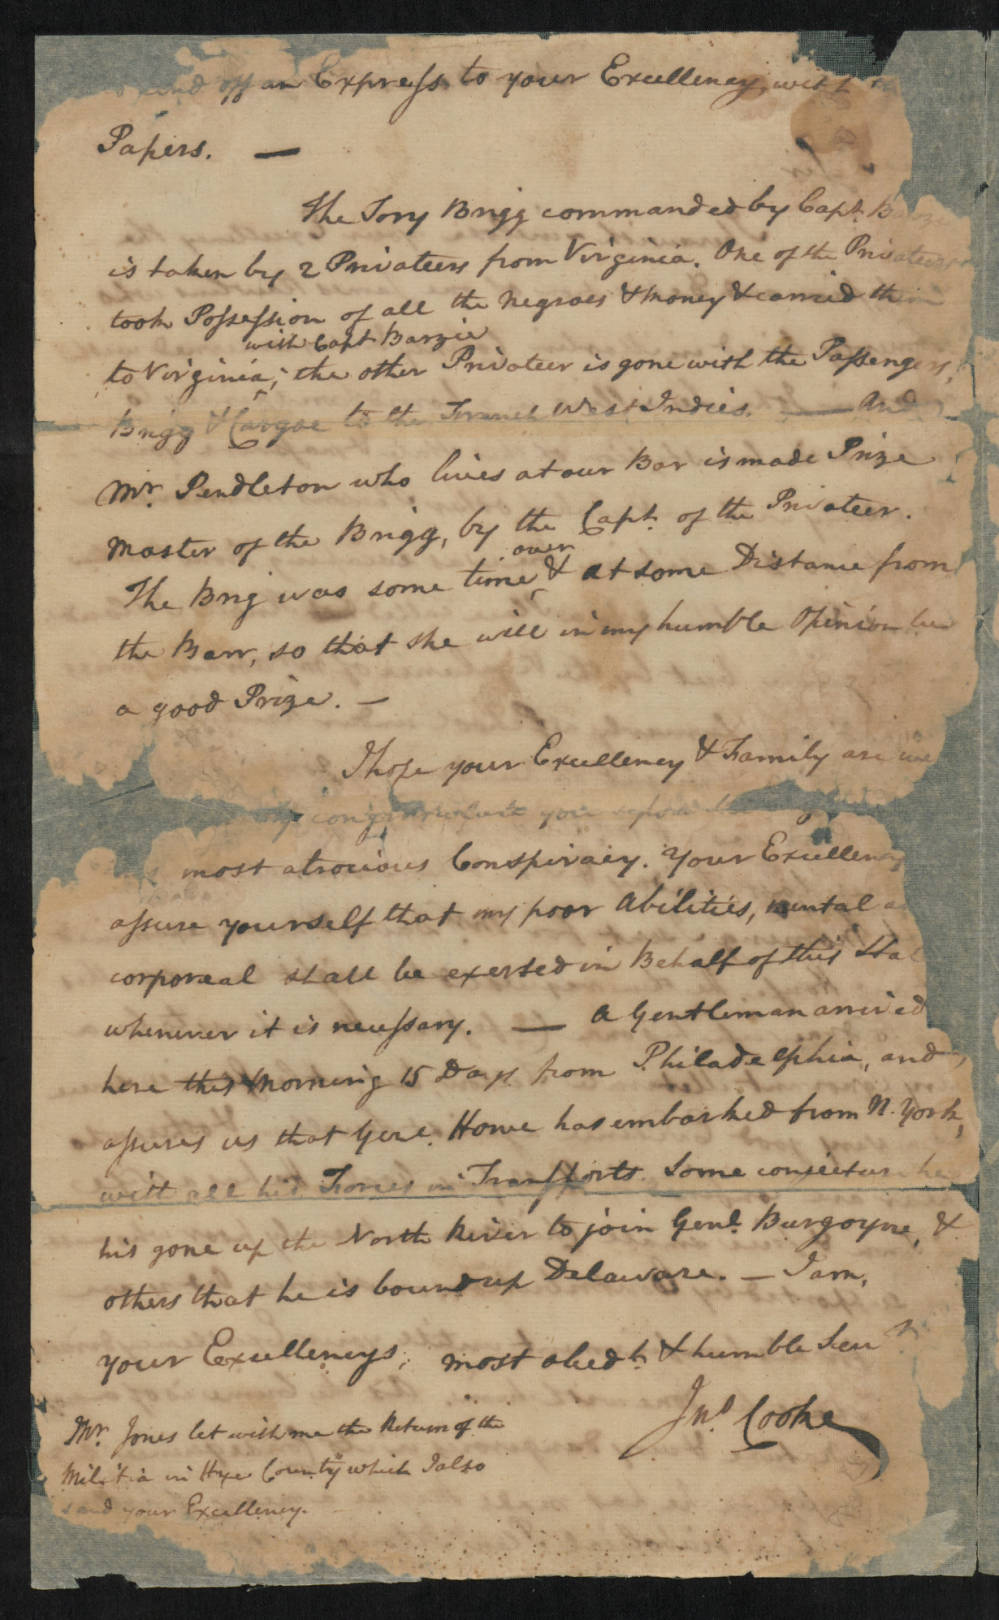 send off an Express to your Excellency, with
Papers. —
The Tory Brigg commanded by Capt.
is taken by 2 Privateers from Virginia. One of the Privateers
took Possession of all the Negroes & Money & carried them
with Capt Barzie
to Virginia; the other Privateer is gone with the Passengers,
Brigg & Cargoe to the French West Indies. — And
Mr. Pendleton who lives at our Bar is made Prize
Master of the Brigg, by the Capt. of the Privateer.
over
The Brig was some time, & at some Distance from
the Barr, so that she will in my humble Opinion be
a good Prize. —
I hope your Excellency & Family are
congratulate you upon
most atrocious Conspiracy. Your Excellency
assure yourself that my poor Abilities, mental
corporeal shall be exerted in Behalf of this
whenever it is necessary. — A Gentleman arrived
here this Morning 15 Days from Philadelphia, and
assures us that Genl. Howe has embarked from N. York,
with all his Forces in Transports. Some conjecture he
his gone up the North River to join Genl. Burgoyne, &
others that he is bound up Delaware. — I am,
your Excellencys, most obedt. & humble Servt
Jno. Cooke
Mr. Jones let with me the Return of the
Militia in Hyde County which I also
send your Excellency.